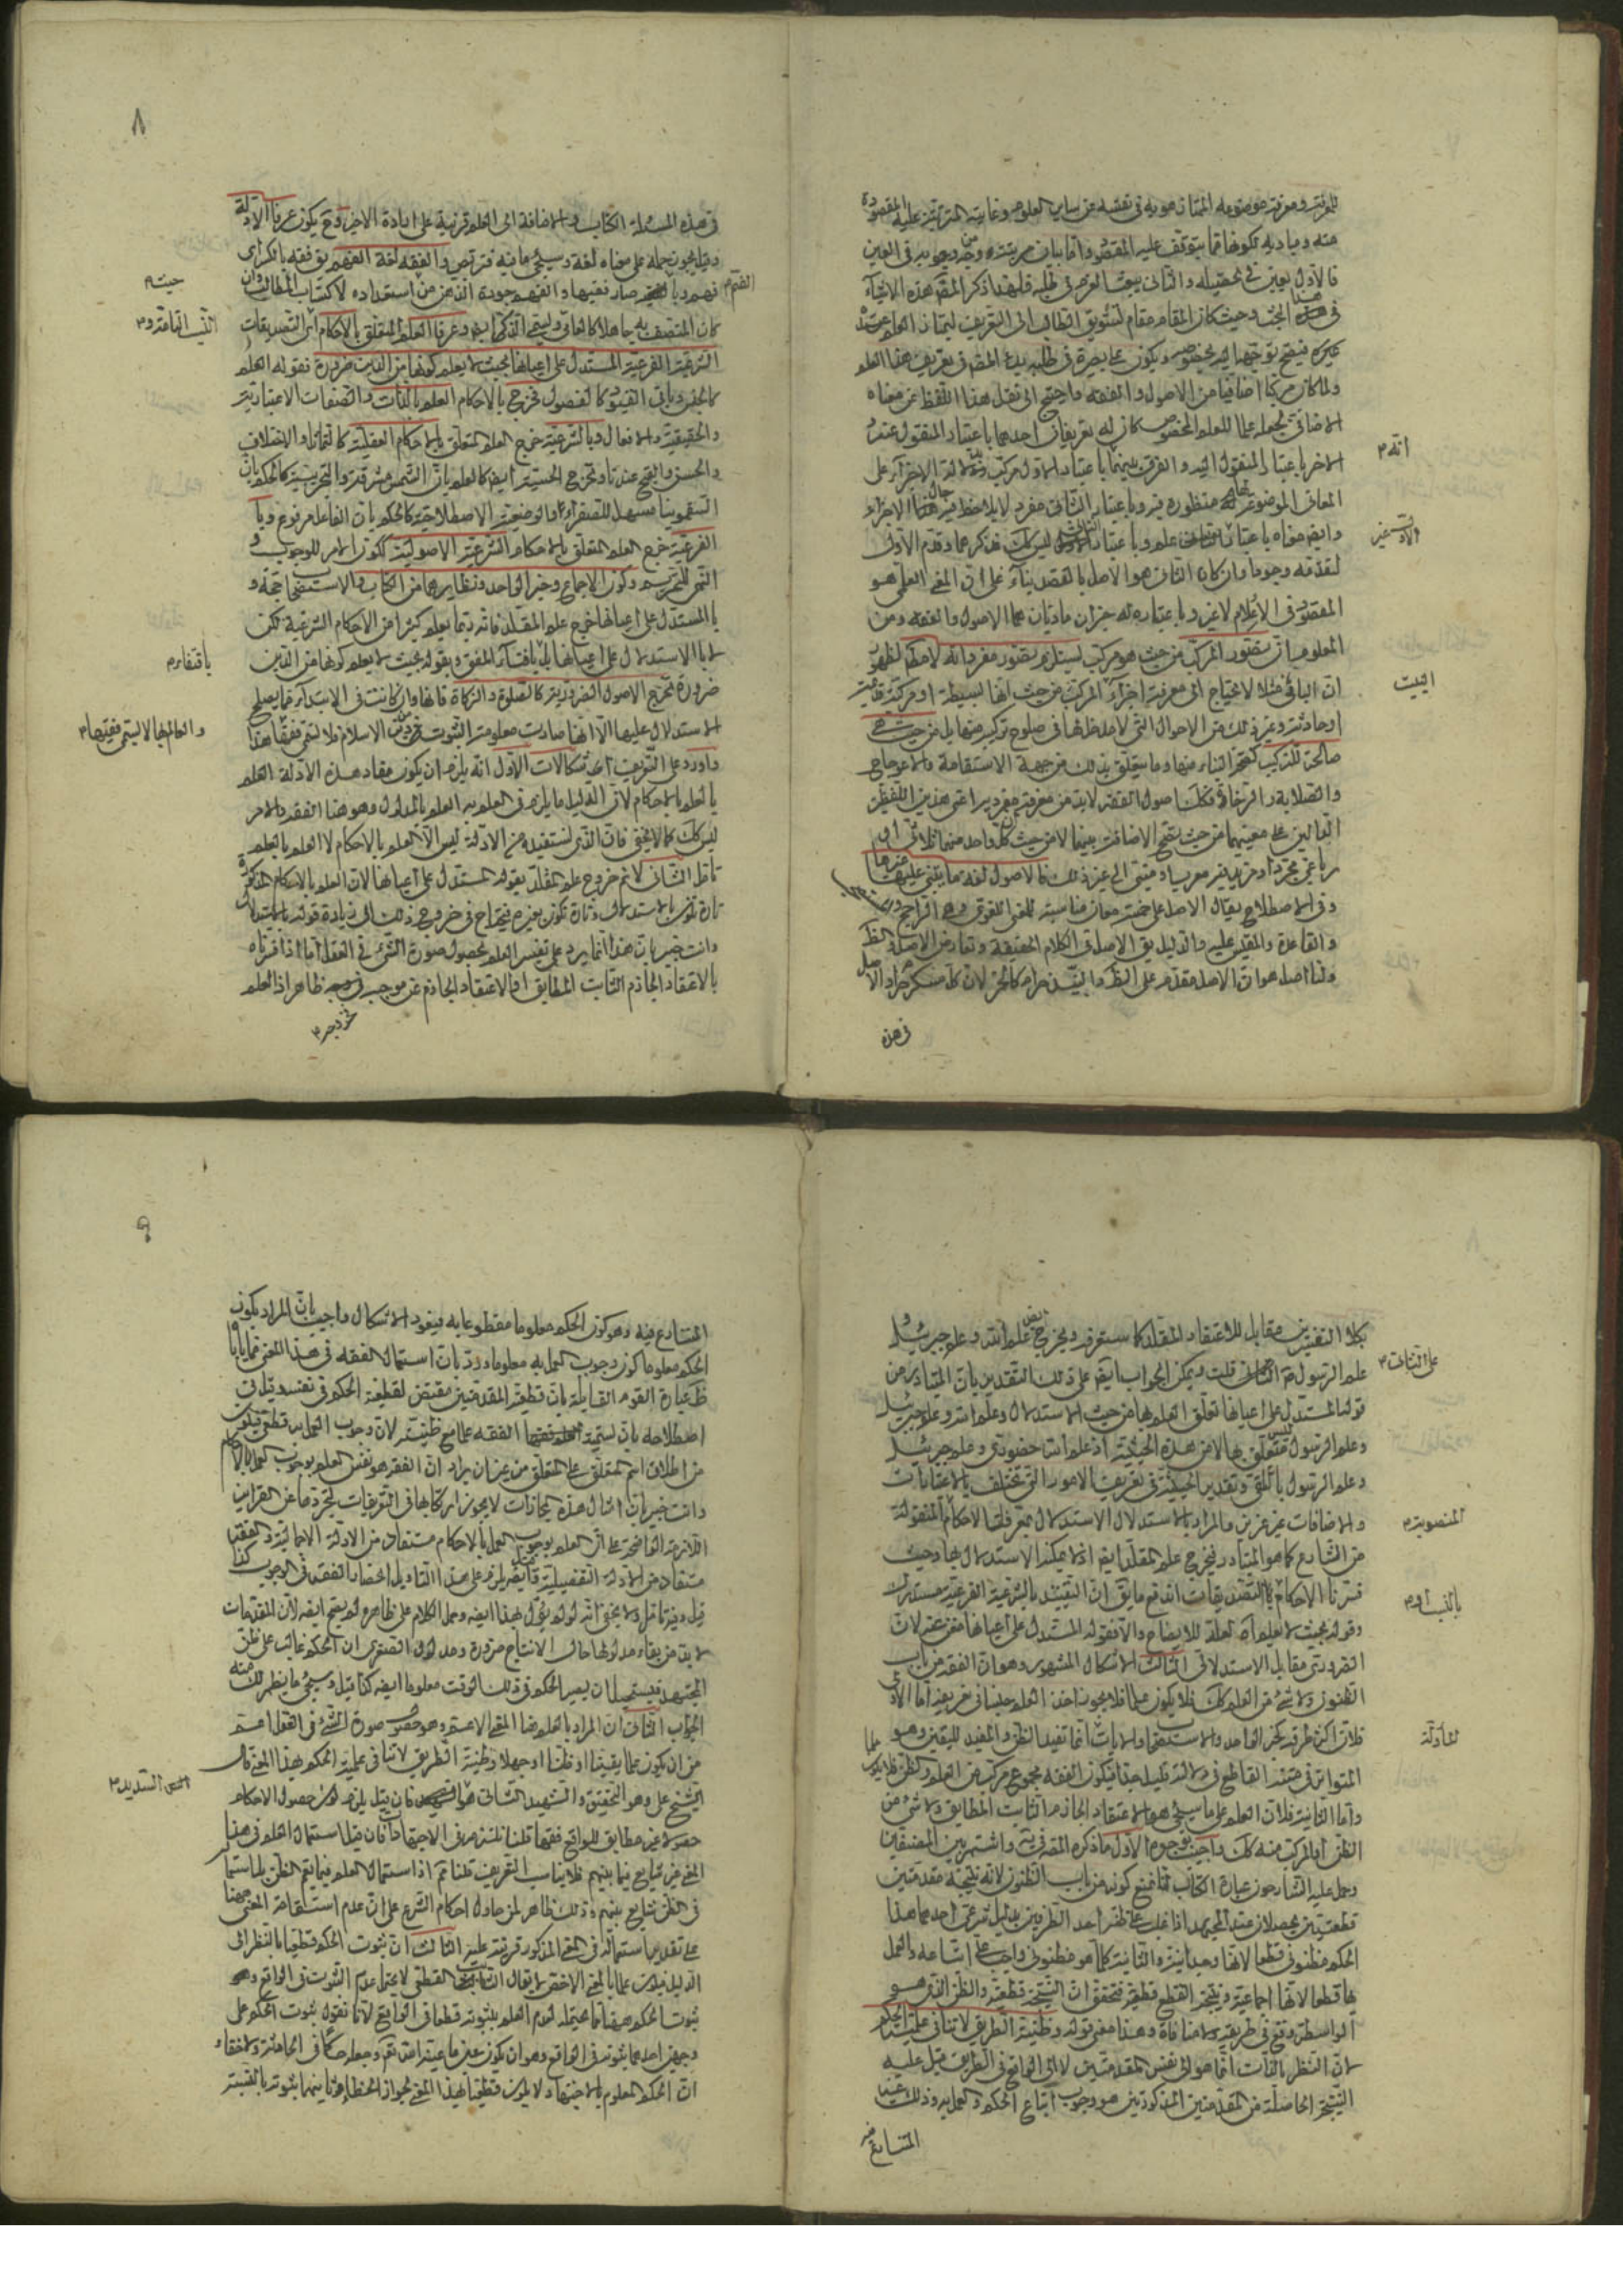 للمعرفة ومعرفة موضوعه الممتاز هو به في نفسه عن ساير العلوم وغايته المترتبة عليه المقصودة
منه ومباديه لكونها مما يتوقف عليه المقصود واما بيان مرتبته ووجه
فالاول يعين في تحصيله والثاني يبعث العزم في طلبه فلهذا ذكر المصنف هذه الاشياء
في هذا المبحث وحيث كان المقام مقام تشويق الطالب الى التعريف ليمتاز العلم عند
غيره فيصح توجهه اليه بخصوصه ويكون على بصيرة في طلبه بدء المصنف في تعريف هذا العلم
ولما كان مركبا اضافيا من الاصول والفقه واحتيج الى نقل هذا اللفظ عن معناه
الاضافي بجعله علما للعلم المخصوص كان له تعريفان احدهما باعتبار المنقول عنه و
الاخر باعتبار المنقول اليه والفرق بينهما باعتبار الاول مركب دلالة الاجزاء على
المعاني الموضوعة لها منظورة فيه وباعتبار الثاني مفرد لا يلاحظ فيه حال الاجزاء
وايضا معناه باعتبار علم وباعتبار ليس كذلك فذكرهما وقدم الاول
لتقدمه وجودا وان كان الثاني هو الاصل بالقصد بناء على ان المعنى العلمي هو
المقصود في الاعلام لا غير وباعتباره له جزءان ماديان هما الاصول والفقه ومن
المعلوم ان تصور المركب من حيث هو مركب يستلزم تصور مفرداته لا مطلقا لظهور
ان الباني مثلا لا يحتاج الى معرفة اجزاء المركب من حيث انها بسيطة او مركبة قديمة
او حادثة وغير ذلك من الاحوال التي لا مدخل لها في صلوح تركيبه منها بل من حيث هي
صالحة للتركيب كصحة البناء منها وما يتعلق بذلك من جهة الاستقامة والاعوجاج
والصلابة والرخاوة فكذلك اصول الفقه لا بد من معرفة مفرديه اعني هذين اللفظين
الدالين على معنيهما من حيث يصح الاضافة بينهما لا من حيث كل واحد منهما ثلاثي او
رباعي مجرد او مزيد فيه معرب او مبني الى غير ذلك فالاصول لغة ما يبتني عليها غيرها
وفي الاصطلاح يقال الاصل على خمسة معان مناسبة للمعنى اللغوي وهي الراجح
والقاعدة والمقيس عليه والدليل يق الاصل في الكلام الحقيقة وتعارض الاصل والظ
ولنا اصل هو ان الاصل مقدم على الظ والنبيذ حرام كالخمر لان كل مسكر حرام والاصل
في هذه
انه م
البيت
في هذه المسئلة الكتاب والاضافة الى العلم قرينة على ارادة الاخير وح يكون عرفا الادلة
وقيل يجوز حمله على معناه لغة وسيجئ ما فيه فتربص والفقه لغة الفهم يق فقه بالكسر اي
فهم وبالضم صار فقيها والفهم جودة الذهن من استعداده لاكتساب المطالب وان
كان المتصف به جاهلا كالعامي ويسمى الذكا ايض وعرفا العلم المتعلق بالاحكام اي التصديقات
الشرعية الفرعية المستدل على اعيانها بحيث لا يعلم كونها من الدين ضرورة فقوله العلم
كالجنس وباقي القيود كالفصول فخرج بالاحكام العلم بالذات والصفات الاعتبارية
والحقيقية والافعال وبالشرعية خرج العلم المتعلق بالاحكام العقلية كالتماثل والاختلاف
والحسن والقبح عندنا ويخرج الحسية ايض كالعلم بان الشمس مشرقة والتجربية كالحكم بان
السقمونيا مسهل للصفراء والوضعية الاصطلاحية كالحكم بان الفاعل مرفوع وبا
الفرعية خرج العلم المتعلق بالاحكام الشرعية الاصولية ككون الامر للوجوب و
النهي للتحريم وكون الاجماع وخبر الواحد ونظايرهما من الكتاب والاستصحاب حجة و
بالمستدل على اعيانها خرج علم المقلد فانه ربما يعلم كثيرا من الاحكام الشرعية لكن
لا بالاستدلال على اعيانها بل بافتاء المفتي وبقوله بحيث لا يعلم كونها من الدين
ضرورة تخرج الاصول الضرورية كالصلوة والزكاة فانها وان كانت في الابتداء مما يصلح
الاستدلال عليها الا انها صارت معلومة الثبوت من دين الاسلام فلا تسمى فقها هذا
واورد على التعريف اشكالات الاول انه يلزم ان يكون مفاد هذه الادلة العلم
بالعلم بالاحكام لان الدليل ما يلزم من العلم به العلم بالمدلول وهو هنا الفقه والامر
ليس كذلك كما لا يخفى فان الذي نستفيده من الادلة ليس الا العلم بالاحكام لا العلم بالعلم
تامل الثاني لا نم خروج علم المقلد بقوله المستدل على اعيانها لان العلم بالاحكام المذكورة
تارة تكون بالاستدلال وتارة تكون بغيره فيحتاج في خروج ذلك الى زيادة قولنا بالاستدلال
وانت خبير بان هذا انما يرد على تفسير العلم بحصول صورة الشئ في العقل اما اذا فسرناه
بالاعتقاد الجازم الثابت المطابق او الاعتقاد الجازم عن موجب ظاهر اذ العلم
فخروجه م
حيث م
بافتقاره م
والعالم بها لا يسمى فقيها م
بكلا التفسيرين مقابل للاعتقاد المقلد كما ستعرفه ويخرج ايض علم الله وعلم جبرئيل و
علم الرسول قلت ويمكن الجواب ايض على ذلك التقدير بان المتبادر من
قوله المستدل على اعيانها تعلق العلم بها من حيث الاستدلال وعلم الله وعلم جبرئيل
وعلم الرسول متعلق بها لا من هذه الحيثية اذ علم الله حضوري وعلم جبرئيل
وعلم الرسول بالتلقي وتقدير الحيثية في تعريف الامور التي تختلف بالاعتبارات
والاضافات غير عزيز والمراد بالاستدلال الاستدلال بمعرفة الاحكام المنقولة
من الشارع كما هو المتبادر فيخرج علم المقلد ايض اذ لا يمكنه الاستدلال بها وحيث
فسرنا الاحكام بالتصديقات اندفع ما يق ان التقييد بالشرعية الفرعية مستدرك
وقوله بحيث لا يعلم اه لعله للايضاح والا فقوله المستدل على اعيانها مغن عنه لان
الضروري مقابل الاستدلالي الثالث الاشكال المشهور وهو ان الفقه من باب
الظنون ولا شئ من العلم كذلك فلا يكون علما فلا يجوز اخذ العلم جنسا في تعريفه اما الاولى
فلان اكثر طرقه كخبر الواحد والاستصحاب والايات انما تفيد الظن والمفيد لليقين وهو
المتواتر في متنه القاطع في دلالته قليل جدا فيكون الفقه مجموع مركب من العلم والظن فلا يكون علما
واما الثانية فلان العلم على ما سيجئ هو الاعتقاد الجازم الثابت المطابق ولا شئ من
الظن او المركب منه كذلك واجيب بوجوه الاول ما ذكره المصنف واشتهر بين المصنفين
وحمل عليه الشارحون عبارة الكتاب انا نمنع كونه من باب الظنون لانه نتيجة مقدمتين
قطعيتين يحصلان عند المجتهد اذا غلب على ظنه احد الطرفين بدليل شرعي احدهما هذا
الحكم مظنوني قطعا لانها وجدانية والثانية كلما هو مظنوني واجب على اتباعه والعمل
بها قطعا لانها اجماعية ونتيجة القطع قطعية فتحقق ان النتيجة قطعية والظن الذي هو
الواسطة وقع في طريقه ولا منافاة وهذا معنى قوله وظنية الطريق لا تنافي علمية الحكم
لان النظر بالذات انما هو الى نفس المقدمتين لا الى الواقع في الطريق قيل عليه
النتيجة الحاصلة من المقدمتين المذكورتين هو وجوب اتباع الحكم والعمل به وذلك غير
المتنازع فيه
المتنازع فيه وهو كون الحكم معلوما مقطوعا به فيعود الاشكال واجيب بان المراد بكون
الحكم معلوما كون وجوب العمل به معلوما ورد بان استعمال الفقه في هذا المعنى مما ياباه
ظ عبارة القوم القايلة بان قطعية المقدمتين مقتض لقطعية الحكم في نفسه قيل في
اصطلاحه بان تسمية الفقه علما مع ظنيته لان وجوب العمل به قطعي فيكون
من اطلاق اسم المتعلق على المتعلق من غير ان يراد ان الفقه هو نفس العلم بوجوب العمل بالاحكام
وانت خبير بان امثال هذه المجازات لا يجوز ارتكابها في التعريفات لتجردها عن القراين
اللازمة الواضحة على ان العلم بوجوب العمل بالاحكام مستفاد من الادلة الاجمالية والفقه
مستفاد من الادلة التفصيلية وايض يلزم على هذا التاويل انحصار الفقه في الوجوب كذا
قيل وفيه تامل ولا يخفى انه لو لم يؤل بهذا ايض وحمل الكلام على ظاهره لم يصح ايض لان المقدمات
لا بد من بقاء مدلولها حال الانتاج ضرورة ومدلول الصغرى ان الحكم غالب على ظن
المجتهد فيستحيل ان يصير الحكم في ذلك الوقت معلوما ايض كذا قيل وسيجئ ما يظهر لك منه
الجواب الثاني ان المراد بالعلم هنا المعنى الاعم وهو حصول صورة الشئ في العقل اعم
من ان يكون علما يقينيا او ظنا او جهلا وظنية الطريق لا تنافي علمية الحكم بهذا المعنى قال
الشيخ علي وهو التحقيق والشهيد الثاني هو فان قيل يلزم كون حصول الاحكام
حصولا غير مطابق للواقع فقها قلنا نلتزمه في الاجتهاديات فان قيل استعمال العلم في هذا
المعنى غير شايع فيما بينهم فلا يناسب التعريف قلنا نعم اذ استعمال العلم فيما يعم الظن بل استعماله
في الظن شايع بينهم وذلك ظاهر لمن حاول احكام الشرع على ان عدم استقامة المعنى هنا
على تقدير استعماله في المعنى المذكور قرينة عليه الثالث ان ثبوت الحكم قطعي بالنظر الى
الدليل فيكون علما بالمعنى الاخص لا يقال القطعي لا يحتمل عدم الثبوت في الواقع و
ثبوت الحكم هيهنا مما يحتمله لعدم العلم بثبوته قطعا في الواقع لانا نقول ثبوت الحكم على
وجهين احدهما ثبوته في الواقع وهو ان يكون عين ما عينه الله تع وجعله حكما في الحادثة ولا خفاء
ان الحكم المعلوم بالاجتهاد لا يكون قطعيا بهذا المعنى لجواز الخطاء وثانيهما ثبوته بالنسبة
على الثالث م
المنصوبة م